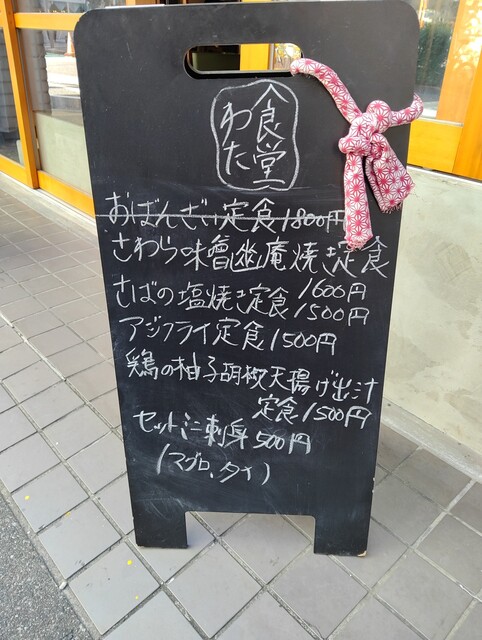 食堂
わた
おばんざい定食1800円
さわら味噌幽庵焼き定食
1600円
さばの塩焼き定食1500円
アジフライ定食1500円
鶏の柚子胡椒天揚げ出汁
定食1500円
セットミニ刺身500円
(マグロ、タイ)